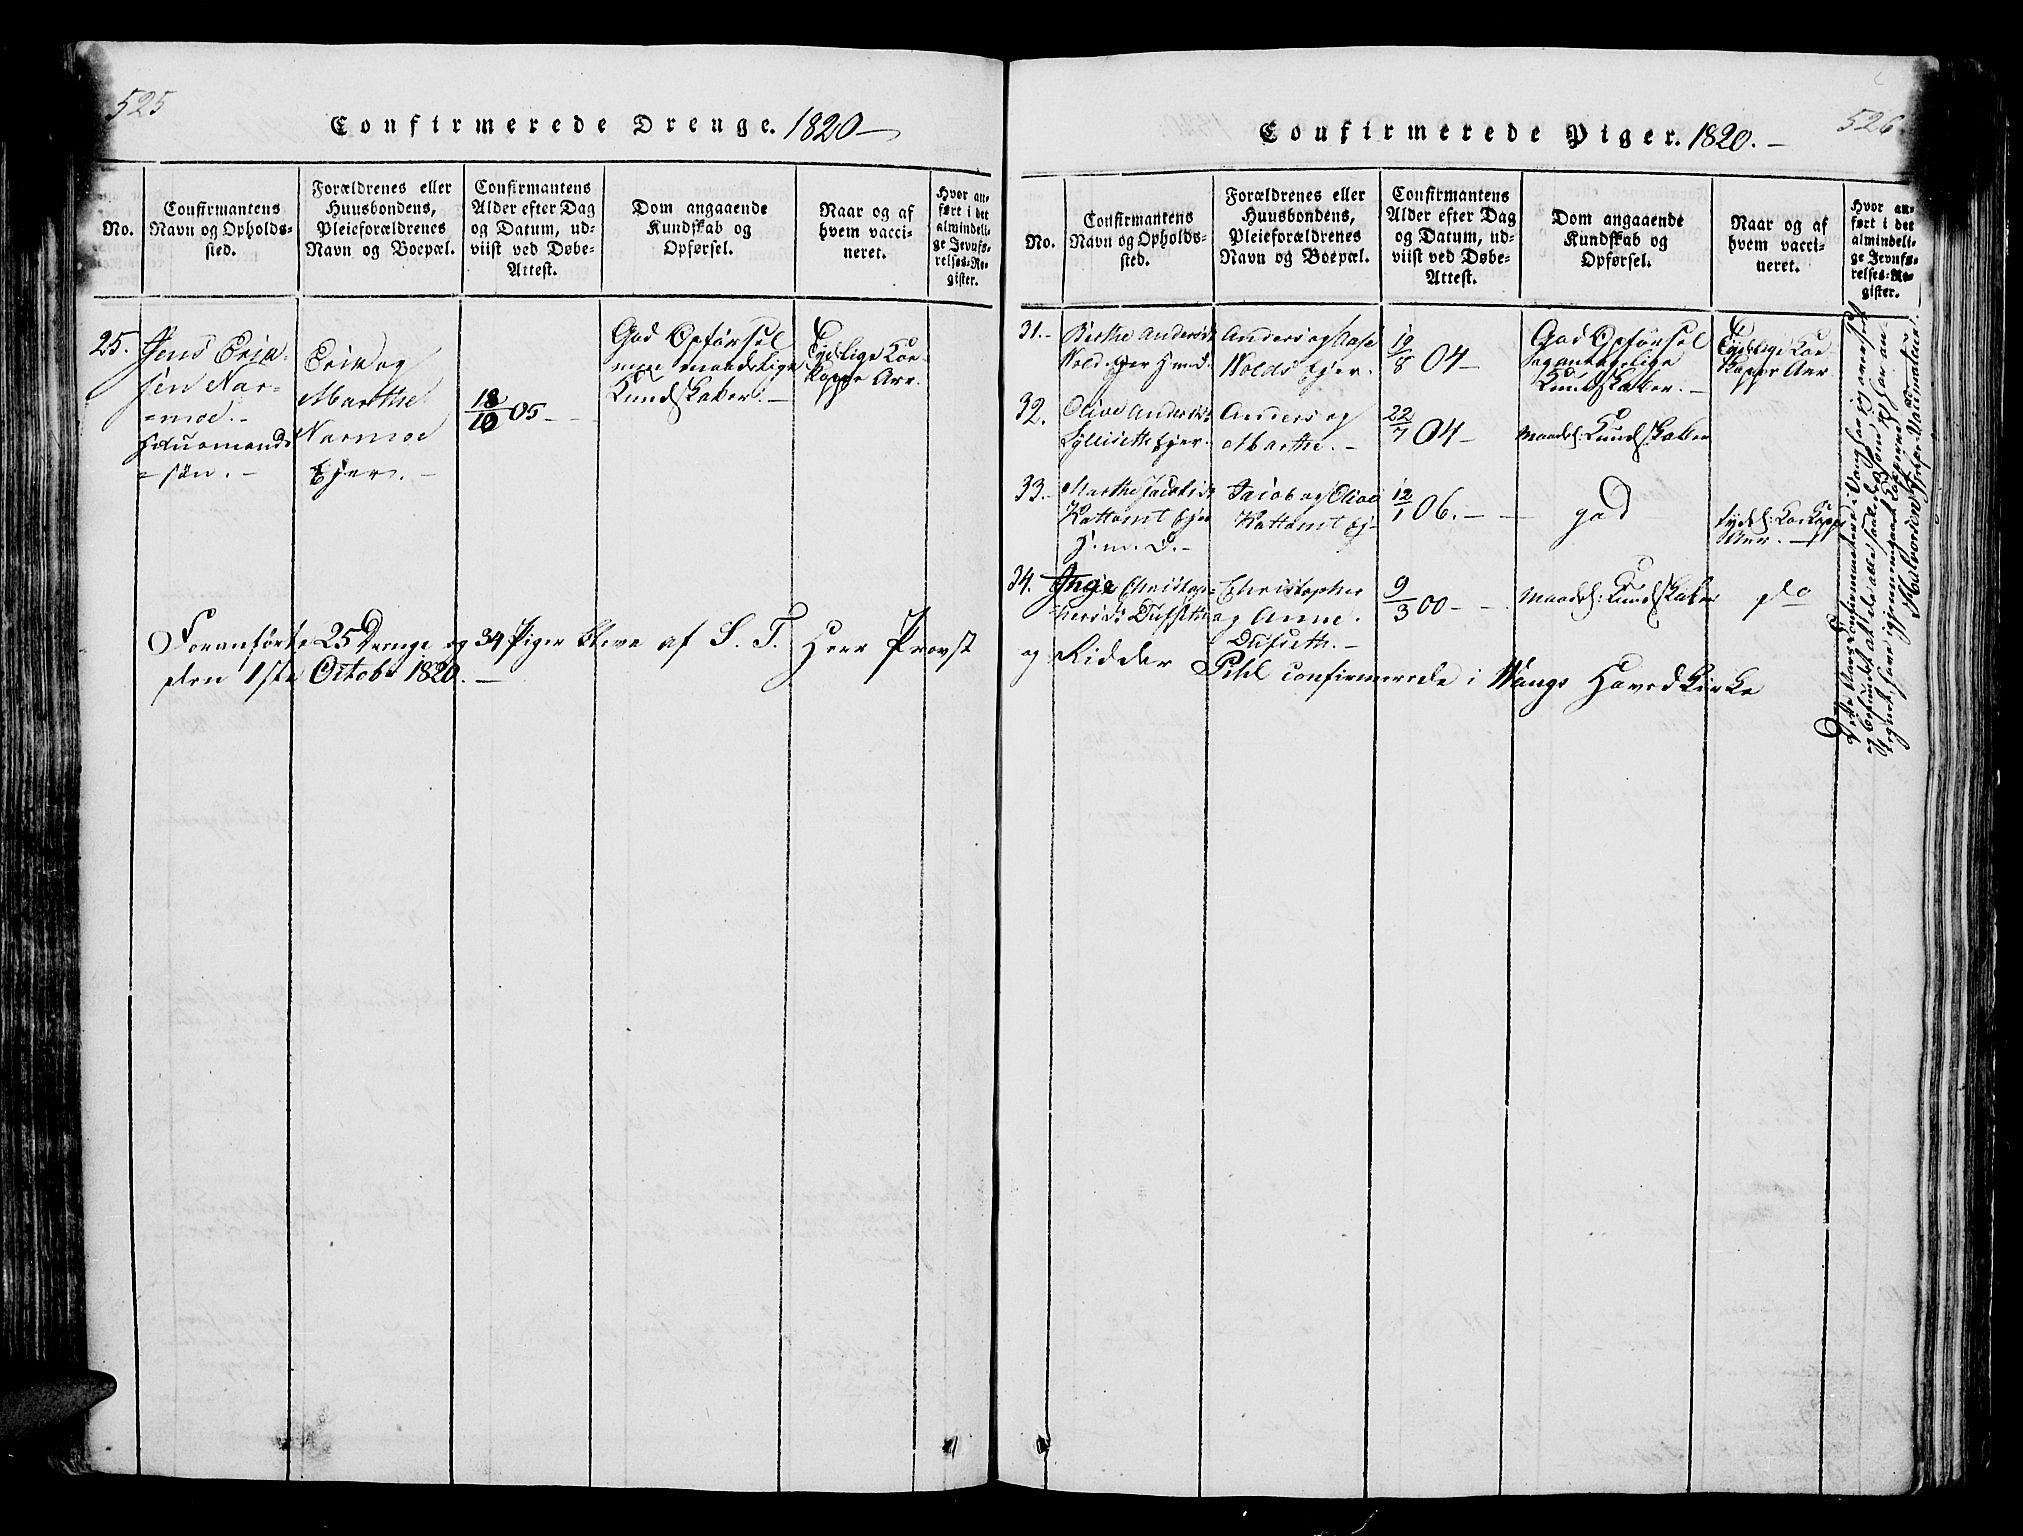 525
Confirmerede Drenge. 1820
No.
Confirmantens
Navn og Opholds-
sted.
Forældrenes eller
Huusbondens,
Pleieforældrenes
Navn og Boepæl.
Confirmantens
Alder efter Dag
og Datum, ud-
viist ved Døbe-
Attest.
Dom angaaende
Kundskab og
Opførsel.
Naar og af
hvem vacci-
neret.
Hvor an-
ført i det
almindeli-
ge Jevnfø-
relses-Re-
gister.
25.
Jens Erich-
sen Nar-
=moe.-
=søn.-
Erik og
Marthe
Narmoe
Ejer.-
18/10 05-
God Opførsel
maadelige
Kundskaber.-
Tydelige Koe-
kopper Arr.
Foranførte 25 Drenge og 34 Piger bleve af S. T. Herr Provst
den 1ste Octobr 1820.-
526
Confirmerede Piger. 1820.-
No.
Confirmantens
Navn og Opholds-
sted.
Forældrenes eller
Huusbondens,
Pleieforældrenes
Navn og Boepæl.
Confirmantens
Alder efter Dag
og Datum, ud-
viist ved Døbe-
Attest.
Dom angaaende
Kundskab og
Opførsel.
Naar og af
hvem vacci-
neret.
Hvor an-
ført i det
almindeli-
ge Jevnfø-
relses-Re-
gister.
31.-
Berthe Andersd:
Wold Ejer
Anders og Aase
Wolds Ejer.
19/8 04-
God Opførsel
antagelige
Kundskaber.-
Tydelige Koe-
kopper Arr
32.
Olive Andersd:
Ejer.
Anders og
Marthe.-
22/7 04-
Maadel: Kundskaber
33.-
Marthe Jacobsd:
Jacob og Olive
12/1 06.-
god
tydel: Koekopper
Arr.-
34.
Inge Christop-
hersd:
Christopher
og Anne
9/3 00-
Maadel: Kundskaber
do
og Ridder Pihl confirmerede i Wangs Hovedkirke